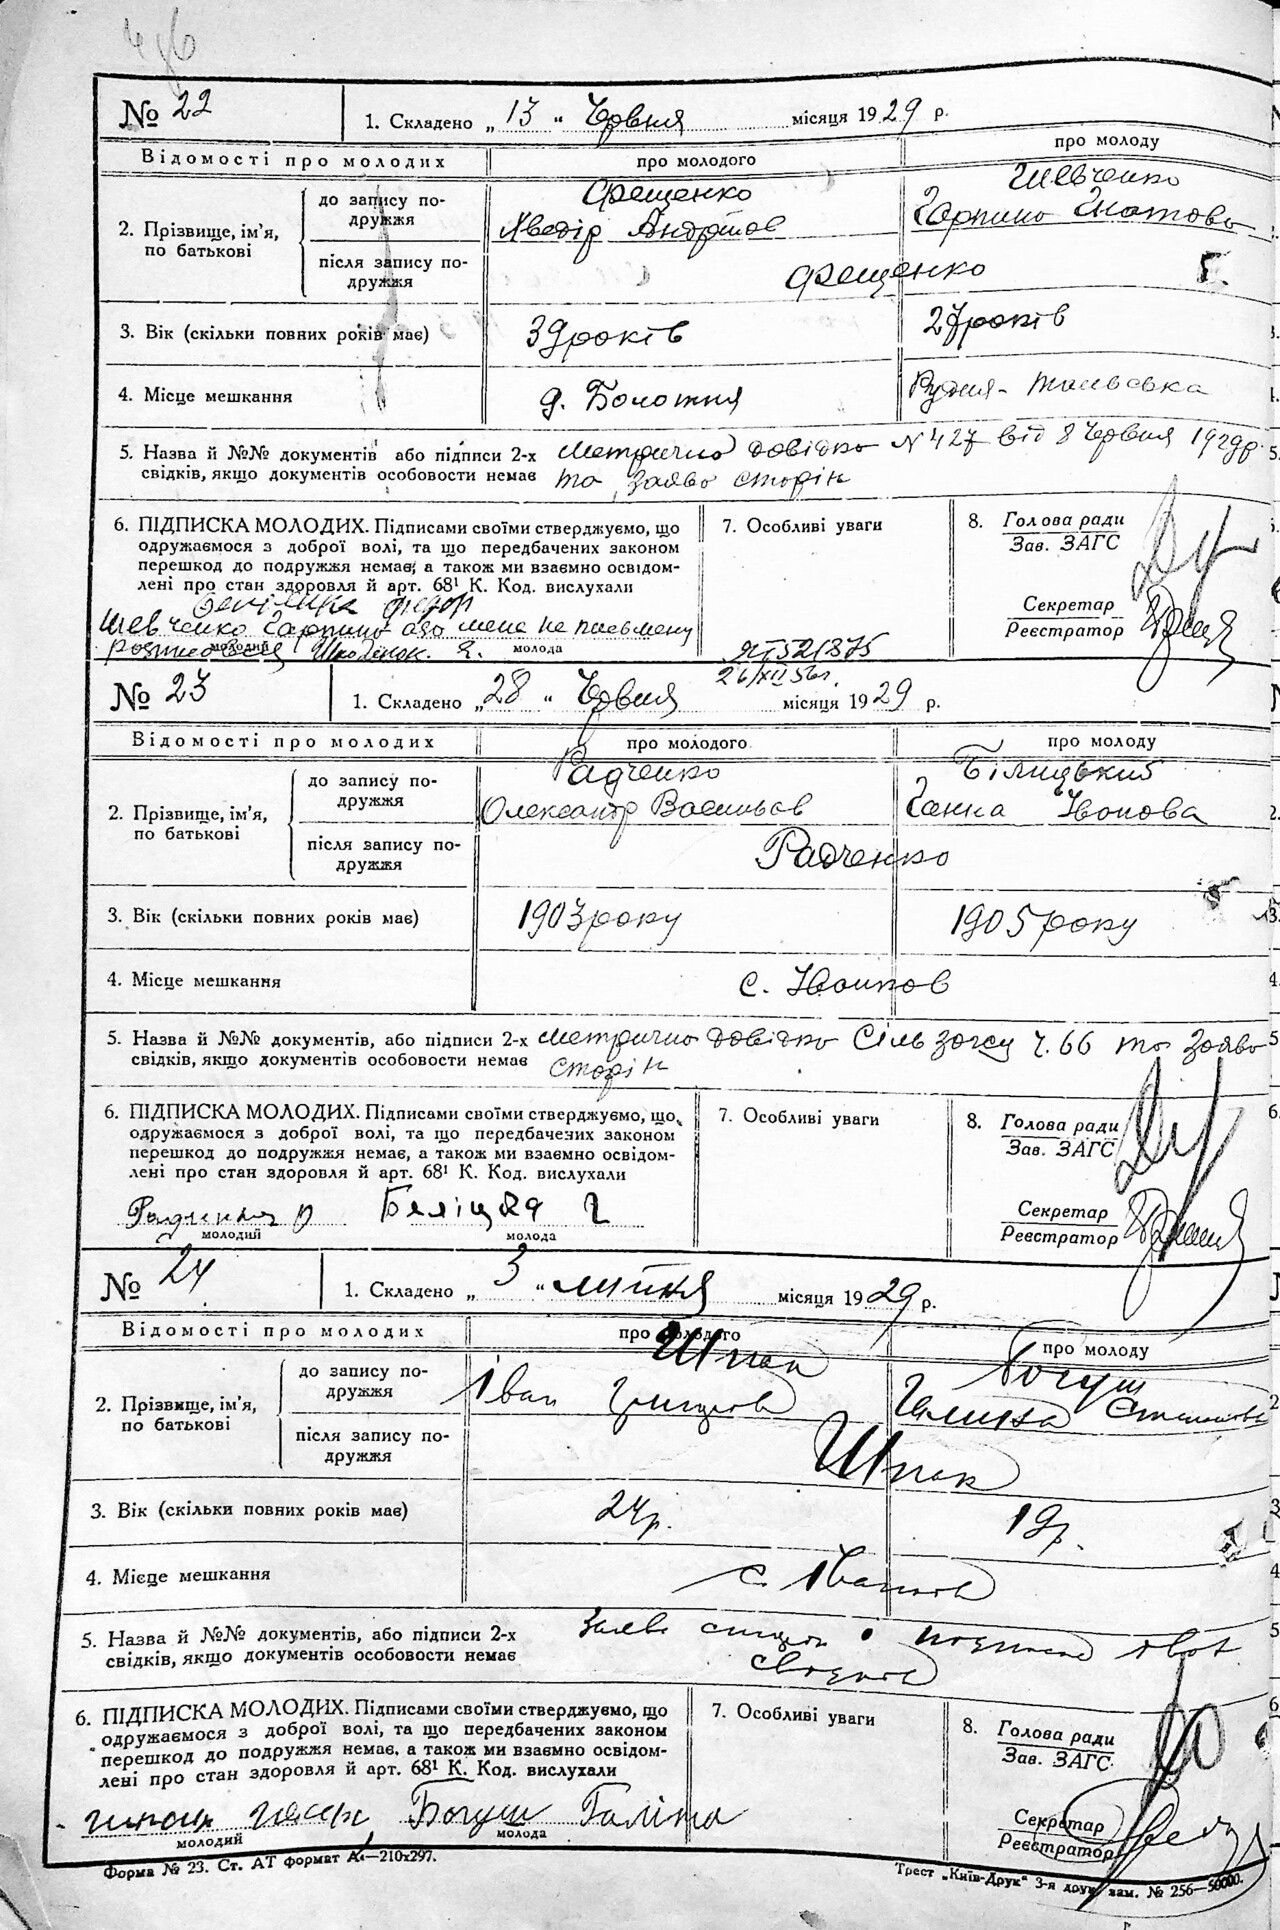 № 22
1. Складено „ 13 “ Червня місяця 1929 р.
Відомості про молодих
про молодого
про молоду
2. Прізвище, ім’я, по батькові
до запису по-
дружжя
Фещенко
Хведір Андріїов
Шевченко
Гарпина Гнатова
після запису по-
дружжя
Фещенко
3. Вік (скільки повних років має)
39 років
27 років
4. Місце мешкання
д. Болотня
Рудня-
5. Назва й №№ документів або підписи 2-х
свідків, якщо документів особовости немає
Метрична довідка № 427 від 8 Червня 1929р.
та заява сторін
6. ПІДПИСКА МОЛОДИХ. Підписами своїми стверджуємо, що
одружаємося з доброї волі, та що передбачених законом
перешкод до подружжя немає, а також ми взаємно освідом-
лені про стан здоровля й арт. 68¹ К. Код. вислухали
Шевченко Гарпина або мене не письмену
молодий
молода
7. Особливі уваги
26/XII 56г.
8. Голова ради
Зав. ЗАГС
Секретар
Реєстратор
№ 23
1. Складено „ 28 “ Червня місяця 1929 р.
Відомості про молодих
про молодого
про молоду
2. Прізвище, ім’я,
по батькові
до запису по-
дружжя
Радченко
Олександр Васильов
Білицький
Ганна Іванова
після запису по-
дружжя
Радченко
3. Вік (скільки повних років має)
1903 року
1905 року
4. Місце мешкання
с. Іванков
5. Назва й №№ документів, або підписи 2-х
свідків, якщо документів особовости немає
Метрична довідка Сільзагсу ч. 66 та Заява
сторін
6. ПІДПИСКА МОЛОДИХ. Підписами своїми стверджуємо, що
одружаємося з доброї волі, та що передбачених законом
перешкод до подружжя немає, а також ми взаємно освідом-
лені про стан здоровля й арт. 68¹ К. Код. вислухали
Беліцка Г
молодий
молода
7. Особливі уваги
8. Голова ради
Зав. ЗАГС
Секретар
Реєстратор
№ 24
1. Складено „ 3 “ липня місяця 1929 р.
Відомості про молодих
про молодого
про молоду
2. Прізвище, ім’я,
по батькові
до запису по-
дружжя
Шпак
Іван Григоров
Богуш
Галина Степанова
після запису по-
дружжя
Шпак
3. Вік (скільки повних років має)
24 р.
19 р.
4. Місце мешкання
с. Іванков
5. Назва й №№ документів, або підписи 2-х
свідків, якщо документів особовости немає
Заява сторін
6. ПІДПИСКА МОЛОДИХ. Підписами своїми стверджуємо, що
одружаємося з доброї волі, та що передбачених законом
перешкод до подружжя немає, а також ми взаємно освідом-
лені про стан здоровля й арт. 68¹ К. Код. вислухали
Богуш Галіна
молодий
молода
7. Особливі уваги
8. Голова ради
Зав. ЗАГС
Секретар
Реєстратор
Форма № 23. Ст. АТ формат А₄—210х297.
Трест „Київ-Друк“ 3-я друк. зам. № 256—50000.